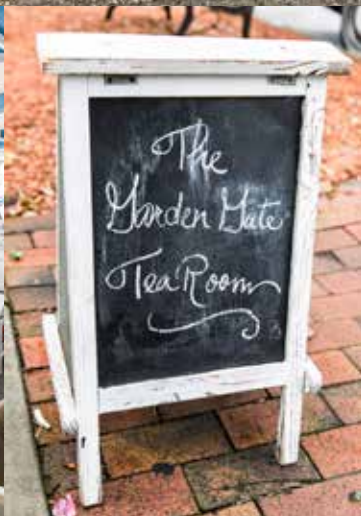 The
Garden Gate
Tea Room